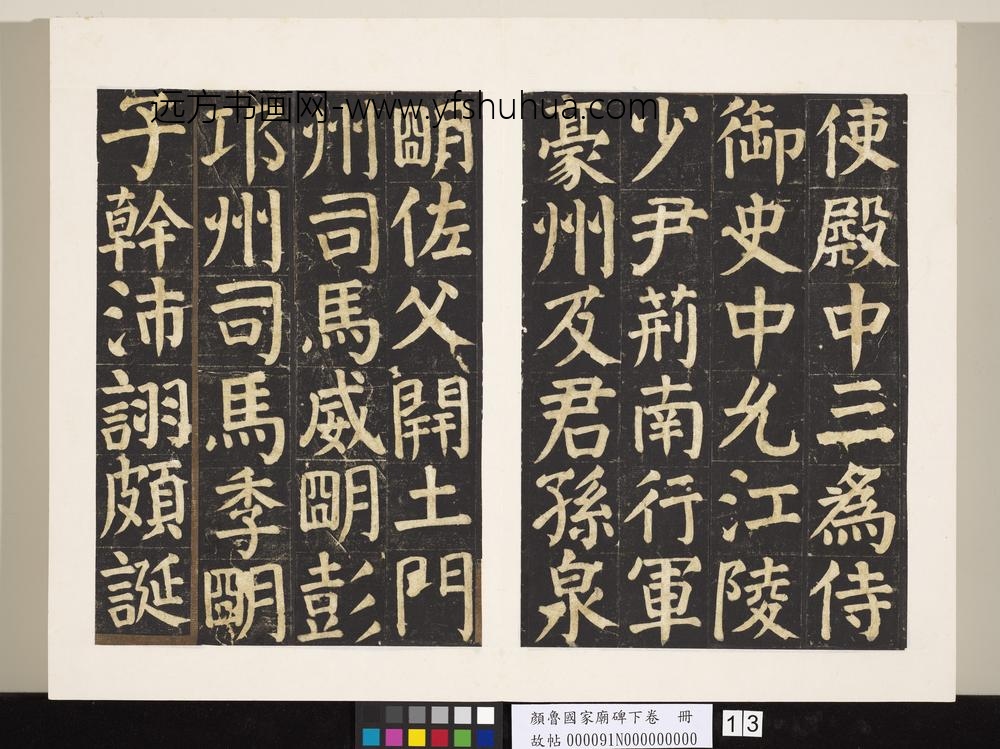 远方书画网-www.yfshuhua.com
使殿中三為侍
御史中允江陵
少尹荊南行軍
豪州及君孫泉
明佐父開土門
州司馬威明彭
邛州司馬季明
子幹沛詡頗誕
顏魯國家廟碑下卷 冊
故帖 000091N000000000
13